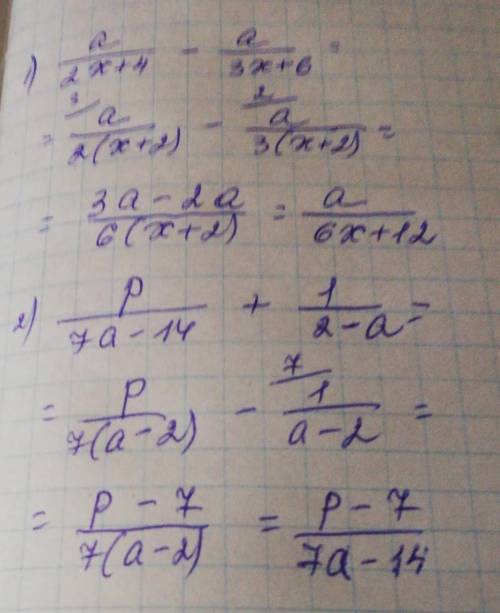 1) a/(2x+4) - a/(3x+6) =
= 3/ a/(2(x+2)) - 2/ a/(3(x+2)) =
= (3a-2a)/(6(x+2)) = a/(6x+12)
2) p/(7a-14) + 1/(2-a) =
= p/(7(a-2)) - 7/ 1/(a-2) =
= (p-7)/(7(a-2)) = (p-7)/(7a-14)